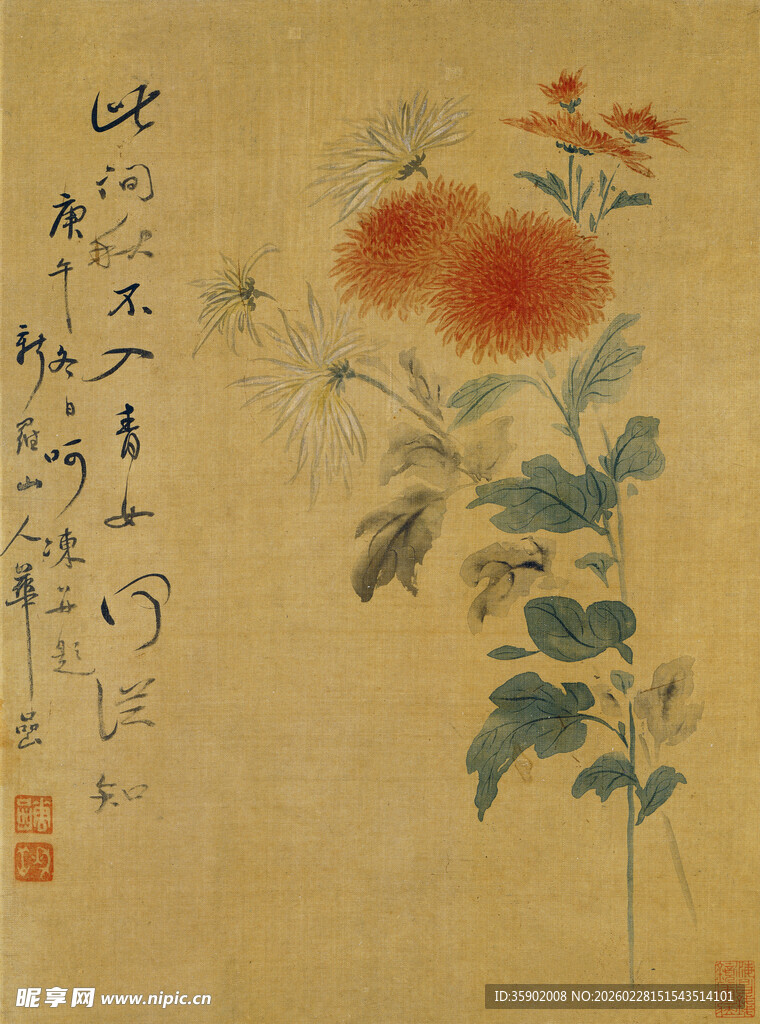 此間秋不入青女何從知
庚午冬日呵凍并題
新羅山人華喦
昵享网 www.nipic.cn
ID:35902008 NO:20260228151543514101